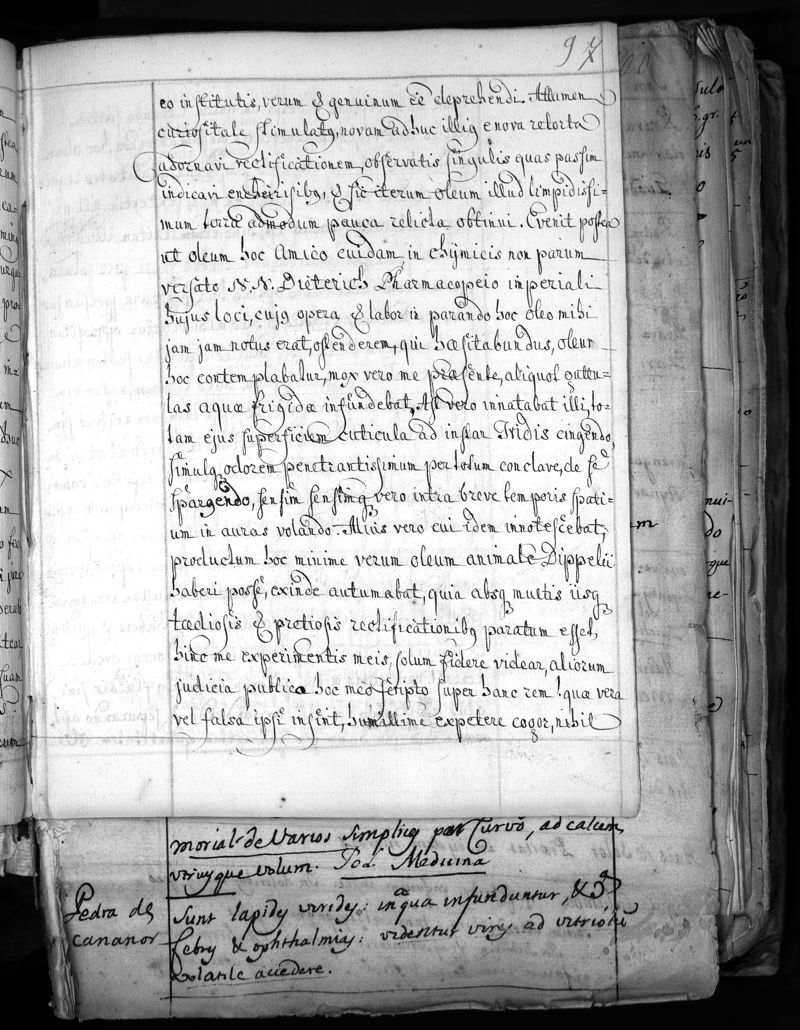 97
eo institutis, verum & genuinum eê deprehendi. Attamen
curiositate stimulatq, novam adhuc illiq e nova retorta
adornavi rectificationem, observatis singulis quas passim
indicavi encheirisibq, & sic iterum oleum illud limpidissi=
mum terræ admodum pauca relicta obtinui. Evenit postea
ut oleum hoc Amico cuidam in chÿmicis non parum
versato N. N. Dieterich Pharmacopeio imperiali
hujus loci, cujq opera & labor in parando hoc oleo mihi
jam jam notus erat, ostenderem, qui hæsitabundus, oleum
hoc contemplabatur, mox vero me præsente, aliquot guttu-
las aquæ frigidæ infundebat, Ast vero innatabat illi, to-
tam ejus superficiem cuticula ad instar Iridis cingendo,
simulq odorem penetrantissimum per totum conclave, de se
spargendo, sensim sensimq vero intra breve temporis spati-
um in auras volando. Alius vero cui idem innotescebat,
productum hoc minime verum oleum animale Dippelii
haberi posse, exinde autumabat, quia absq multis usq
tædiosis & pretiosis rectificationibq paratum esset,
hinc me experimentis meis, solum fidere videar, aliorum
judicia publica hoc meo scripto super hanc rem /: qua vera
vel falsa ipsi insint, humillime expetere cogor, nihil
morial de Varios simplices par Curvo, ad calcem
utriusque volum. Pol. Medicina
Pedra de
cananor
Sunt lapides virides: in aqua infunduntur, &
febres & ophthalmias: videntur vires ad vitriolū
volatile accedere.